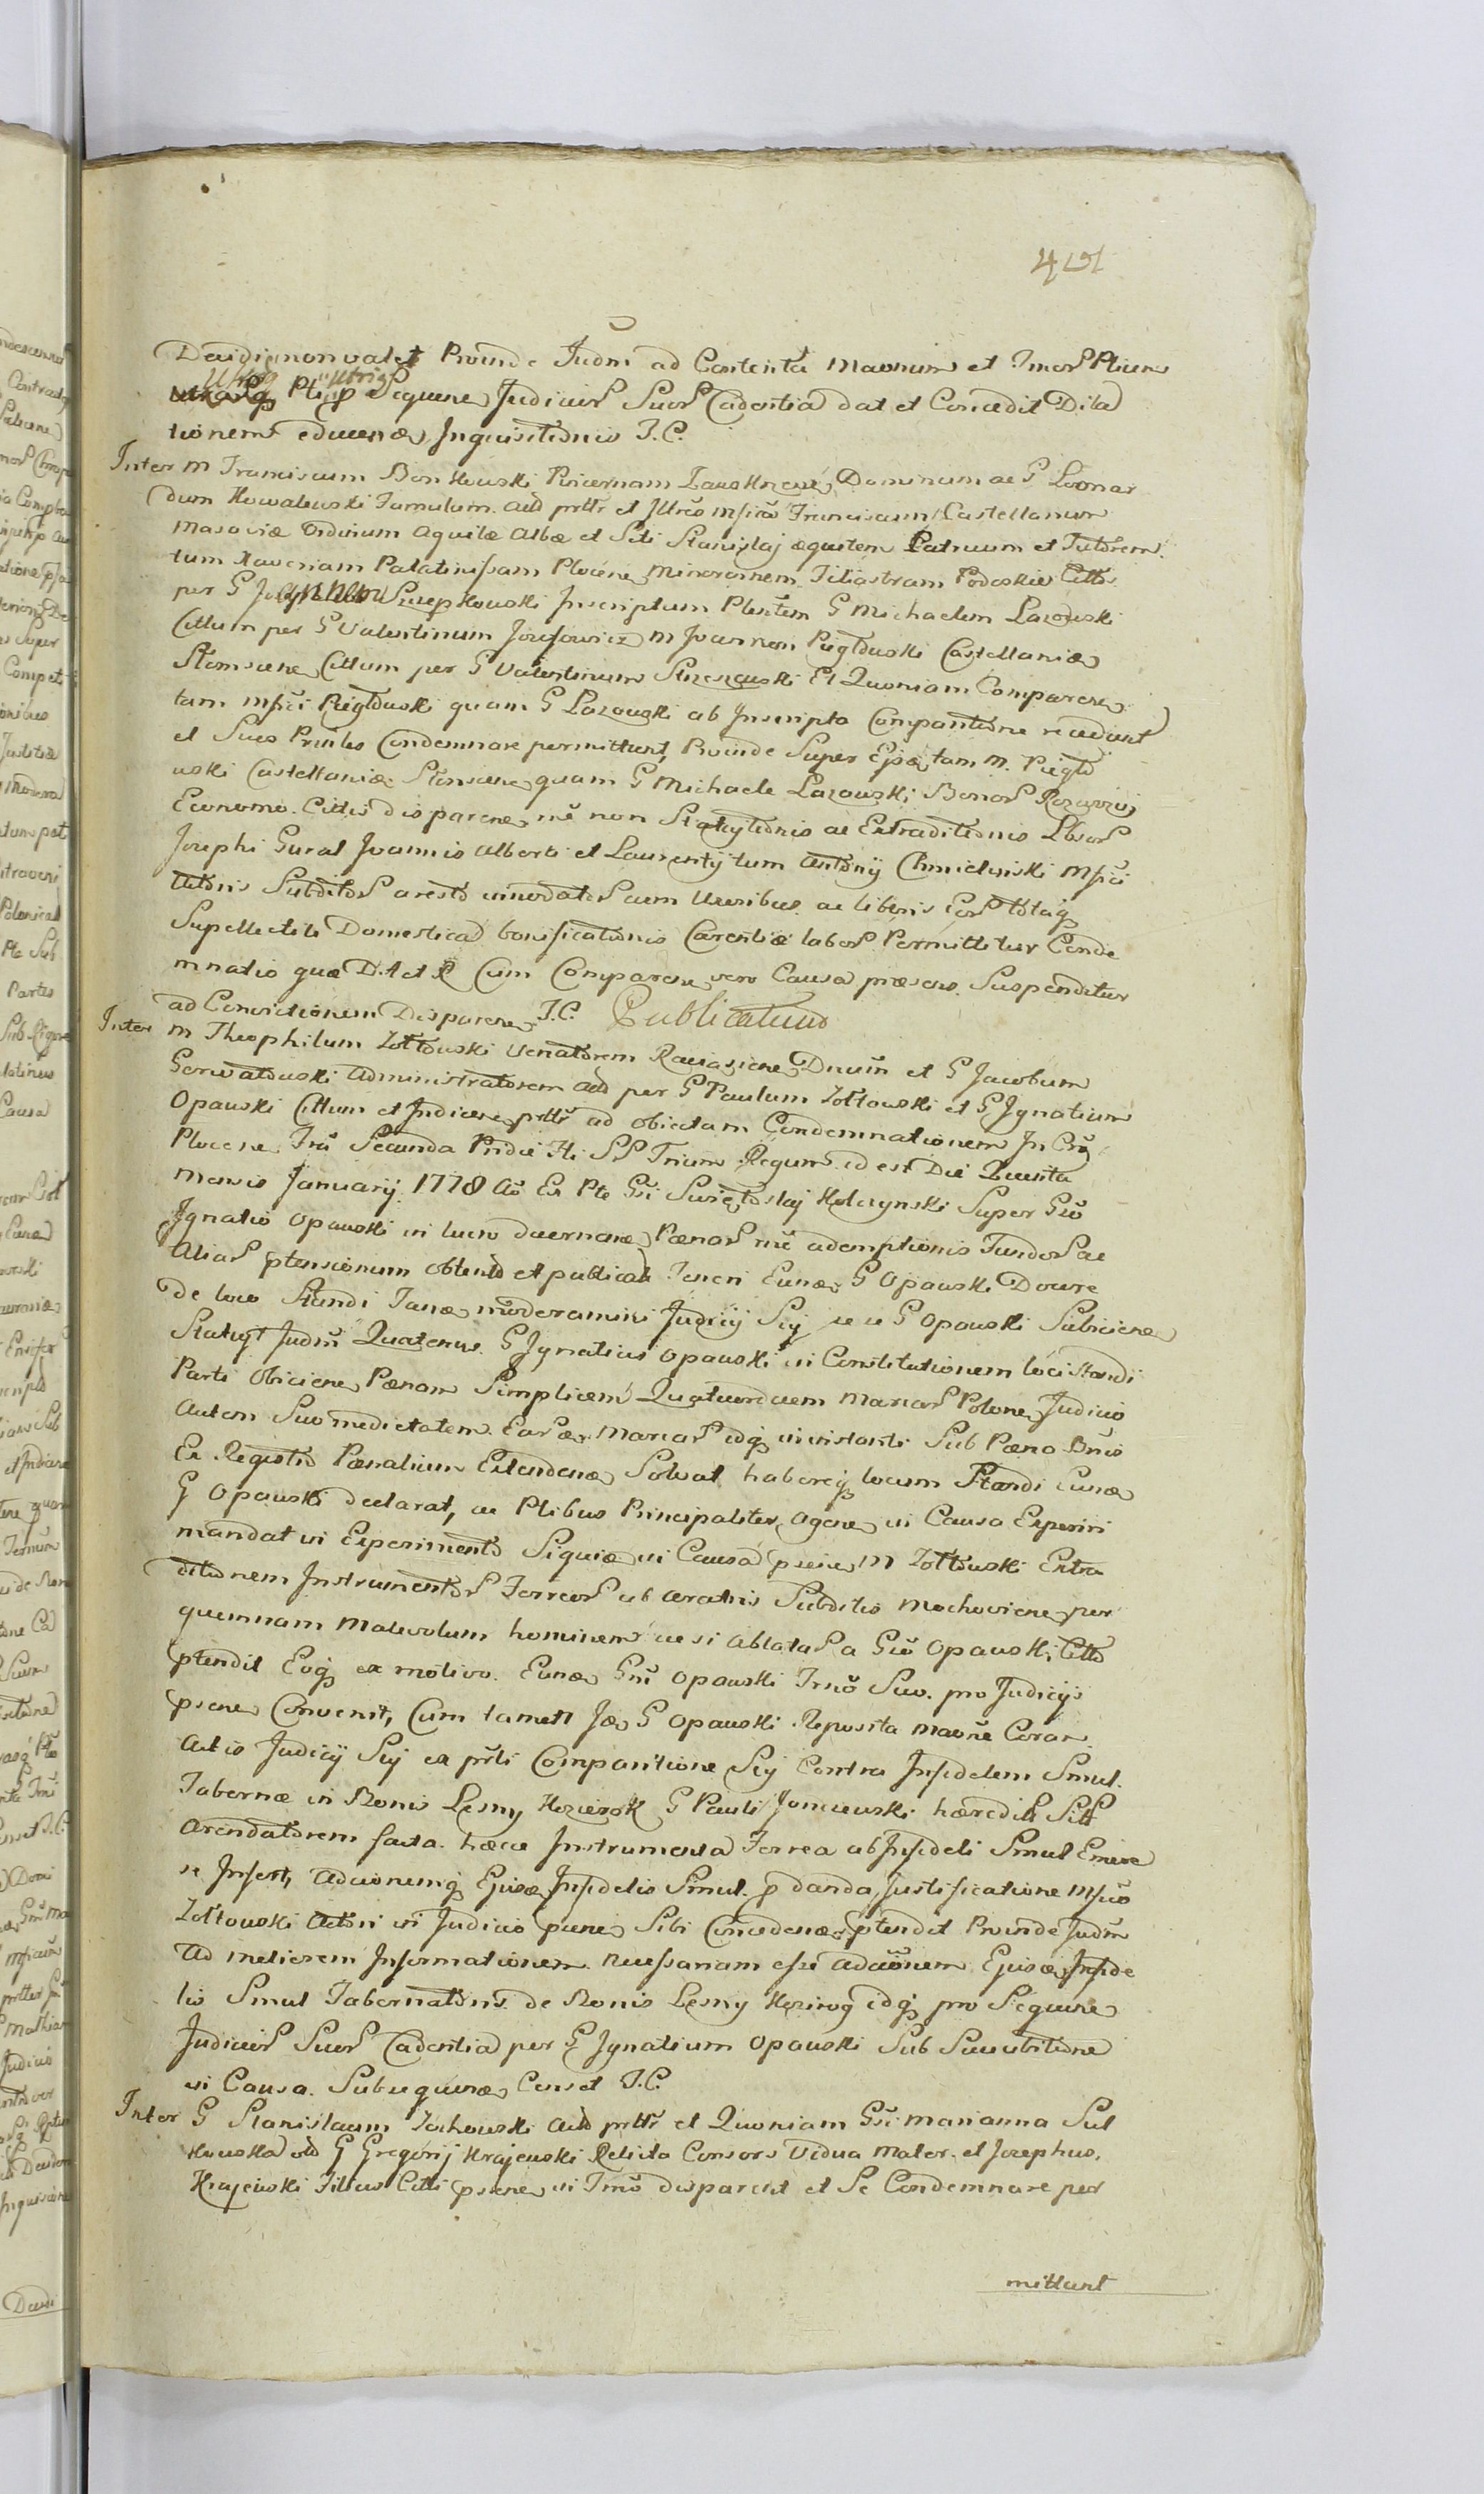 451
Decidi non valet Proinde Judm ad Contenta maonum et Jmor Ptium
utrasq utrq Pte p utriq Sequene Judicior Suor Cadentia dat et Concedit Dila
tionem educenæ Inquisitionis J.C.
Inter M Franciscum Bonkowski Pincernam Zawskrzene Dominum ac G Leonar
dum Kowalewski Famulum. actd prttr et Jllrēo mficō Franciscum Castellanum
Masoviæ Ordinum Aquilæ Albæ et Scti Stanislaj æquitem Patruum et Tutorem
tum Xaveriam Palatinissam Plocene Minorennem Filiastram Podoskie Cttos
per G Szczepkowski Inscriptum Plentem G Michaelem Lazowski
Cittum per G Valentinum Josefowicz M Joannem Piegłowski Castellaniæ
Słonscene Cittum per G Valentinum Strzeszewski Et Quoniam Comparene
tam mfici Piegłowski quam G Lazowski ab Inscripta Comparitione recedunt
et Suos Prinles Condemnare permittunt, Proinde Super Ejsæ tam M. Piegło
wski Castellaniæ Słonscene quam G Michaele Lazowski Bonor
Economo. Cittis disparene rnē non Statuitionis ac Extraditionis Lbsor
Josephi Gural Joannis Alberti et Laurentij tum Antonij Chmielinski Mfici
Actoris Subditor aresto innodator cum Uxoribus ac liberis Eor totaq
Supellectili Domestica bonificationis Carentiæ labor Permittitur Conde
mnatio quæ D.A et R Cum Comparene vero Causa præsens. Suspenditur
ad Convictionem Disparene J.C. Publicatum
Inter M Theophilum Zołtowski Venatorem Raviasiene Dnum et G Jacobum
Gerwatowski Administratorem actd per G Paulum Zołtowski et G Ignatium
Opawski Cittum et Judicene prttr ad obiectam Condemnationem In Crū
Plocene Fria Secunda Pridie Fti SS Trium Regum id est Die Quinta
Mensis Januarij 1778 Aō Ex Pte Gsi Swiętosłaj Kolczynski Super Gsō
Ignatio Opawski in lucro Pænar rnē ademptionis Fundor ac
Aliar ptensionum obtento et publicat Teneri Eunæ G Opawski Docere
De loco Standi Janæ moderamini Judicij Sij se G Opawski Subiicienæ
Statuit Judm Quatenus. G Ignatius Opawski in Constitutionem loci Standi
Parti Obiiciene Pænam Simplicem Quatuordecem Marcar Polone, Judicio
Autem Suo medietatem. Ear æ Marcar idq in instanti Sub Pæna Bnis
Ex Regestro Pænalium Extendenæ Solvat haberiq locum Standi Eunæ
G Opawski declarat, ac Ptibus Principaliter Agene in Causa Experiri
mandat in Experimento Siquis in Causa psene M Zołtowski Extra
ditionem Instrumentor Ferreor ab Aratris Subditis Mochoviene per
quemnam Malevolum hominem ac si ablatar a Gsō Opawski Citto
ptendit Eoq ex motivo. Eunæ Gsū Opawski Trnō Suo. pro Judicijs
psene Convenit, Cum tamen Jdæ G Opawski Reposita maone Coram
Actis Judicij Sij ex prti Comparitione Sij Contra Infidelem Smul.
Tabernæ in Bonis Lesny Kozierok G Pauli haeredit Sitt
Arendatorem facta. hæcce Instrumenta Ferrea ab Infideli Smul Emisse
se Insert, Adcionemq Ejusæ Infidelis Smul. p danda Justificatione Mficō
Zołtowski Actori in Judicio psene Sibi Concedenæ ptendit Proinde Judm
Ad meliorem Informationem necessariam esse adcionem Ejusæ Infide
lis Smul Tabernatoris de Bonis Lesny Kozirog idq pro Sequene
Judicior Suor Cadentia per G Ignatium Opawski Sub Succubitione
in Causa. Subsequenæ Censet J.C.
Inter G Stanislaum Zochowski actd prttr et Quoniam Gsi Marianna Sul
kowska old G Gregorij Krajewski Relicta Consors Vidua Mater. et Josephus.
Krajewski Filius Citti psene in Trnō disparent et Se Condemnare per
mittunt